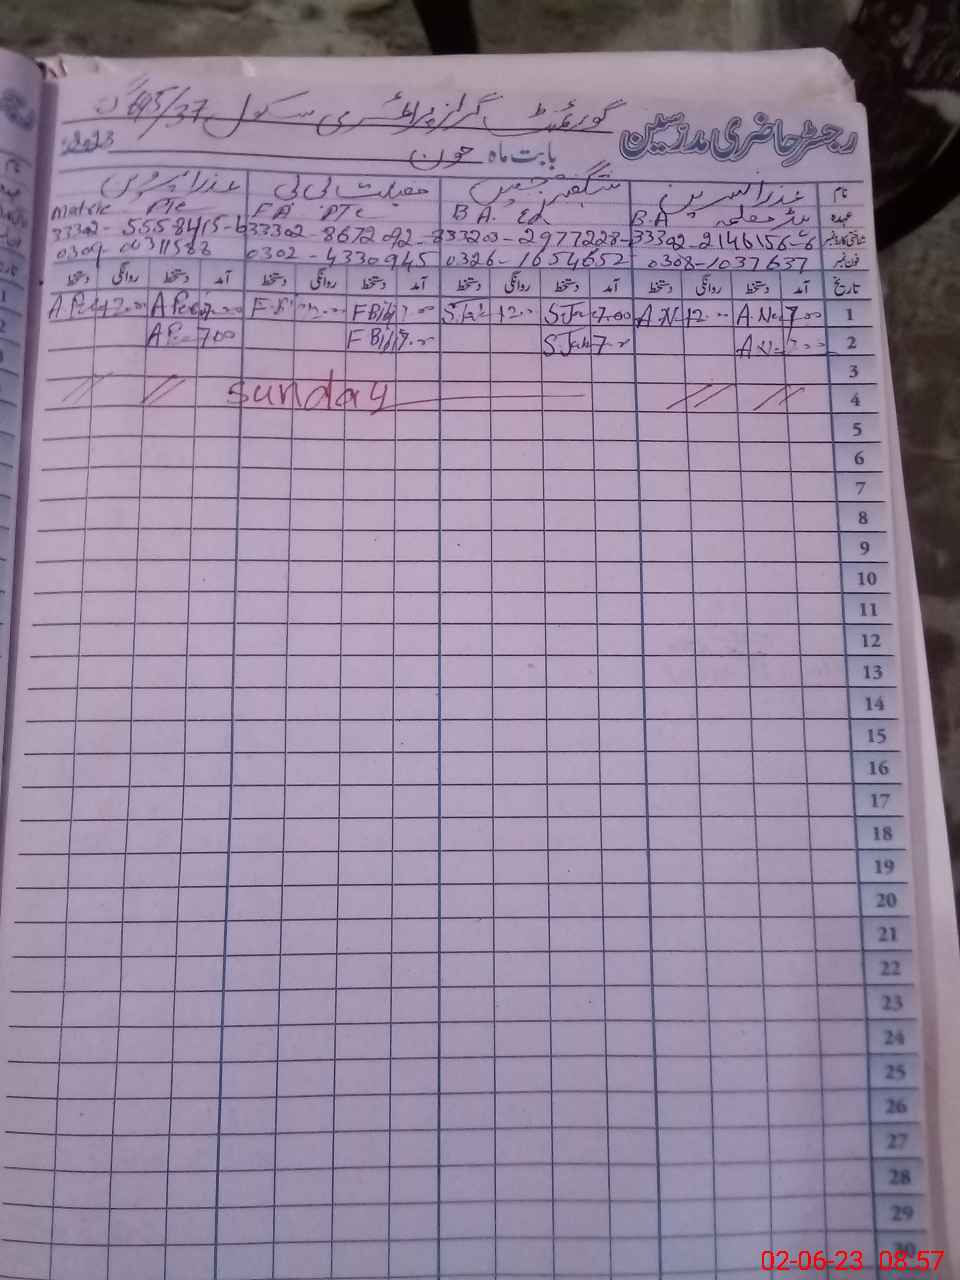 رجسٹر حاضری مدرسین
گورنمنٹ گرلز پرائمری سکول 645/37
بابت ماہ جون 2023
نام عذرا نسرین شگفتہ جبیں فضیلت بی بی عذرا پروین
عہدہ ہیڈ معلمہ B.A B A. Ed FA PTC Matric PTC
شناختی کارڈ نمبر 33302-2146156-6 333203-2977228- 33302-8672092-8 33302-5558415-6
فون نمبر 0308-1037637 0326-1654652 0302-4330945 0304
تاریخ آمد دستخط روانگی دستخط آمد دستخط روانگی دستخط آمد دستخط روانگی دستخط آمد دستخط روانگی دستخط
1 7.00 A.N 12.00 A.N 7.00 S.Ja 12.00 S.Ja 7.00 F Bibi 12.00 7.00 12.00
2 7.00 S.Jab 7.00 F Bibi 7.00
3
4 // // Sunday // //
5
6
7
8
9
10
11
12
13
14
15
16
17
18
19
20
21
22
23
24
25
26
27
28
29
30
02-06-23 08:57